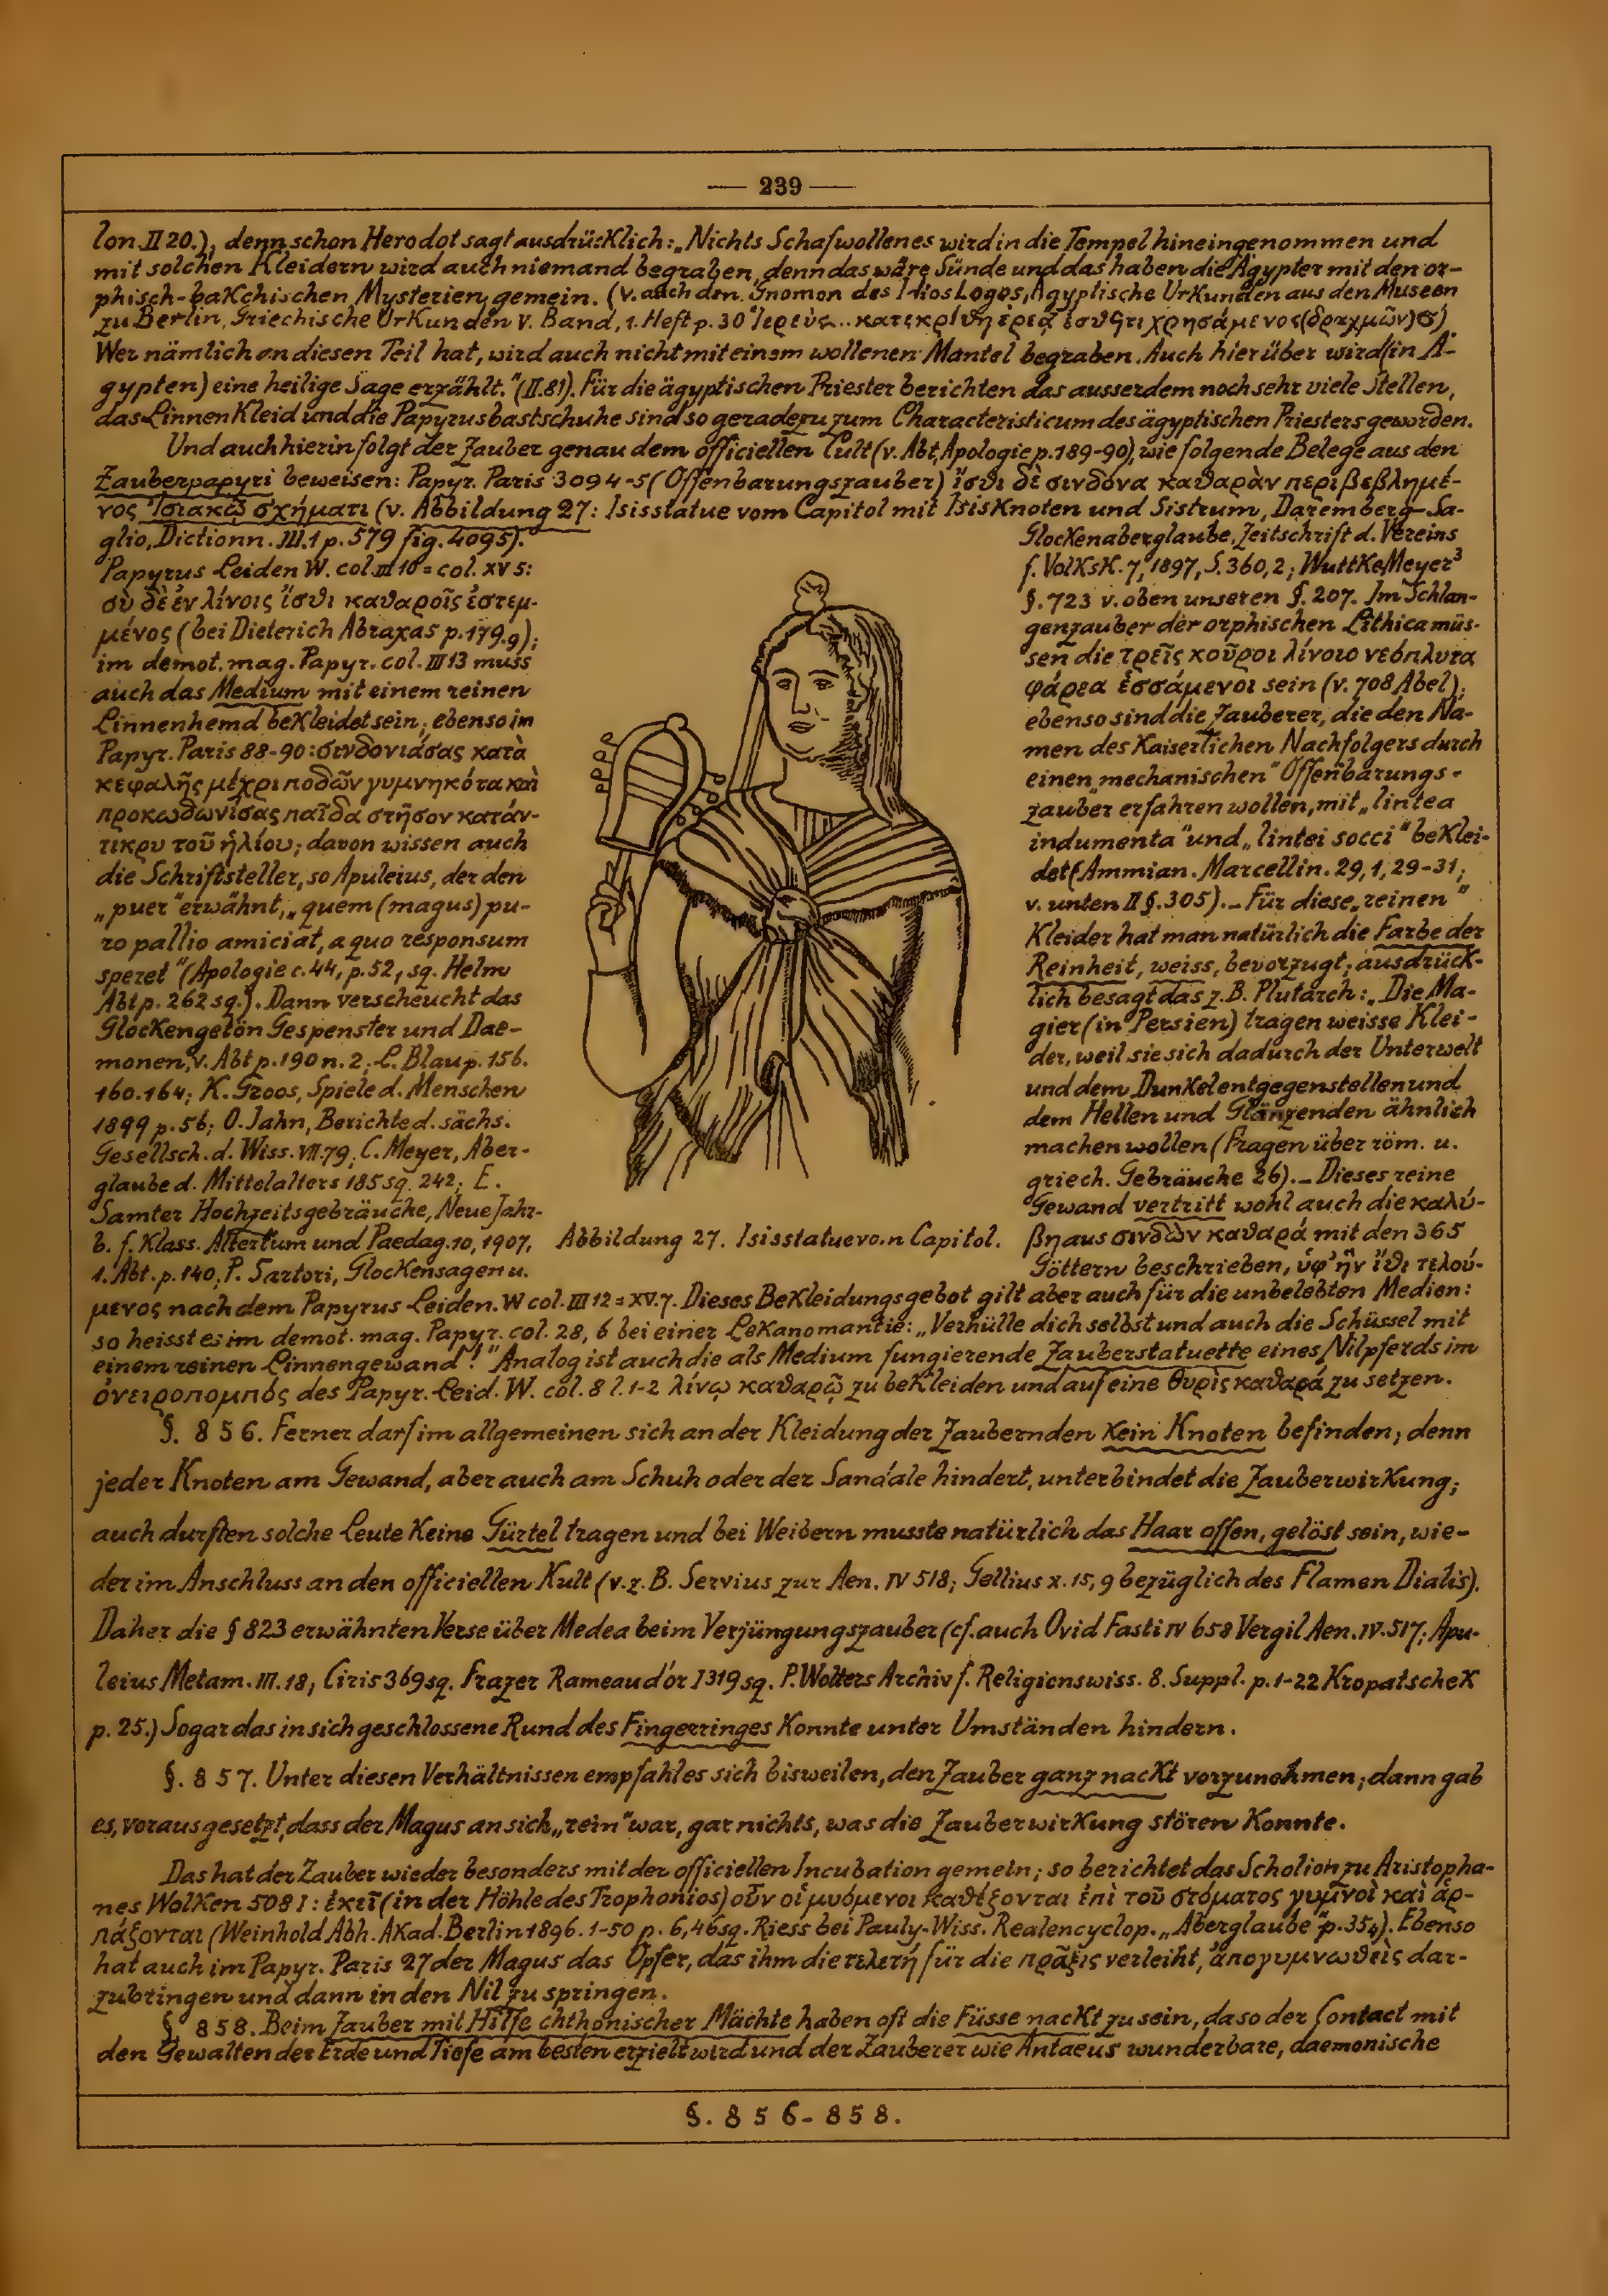 — 239 —
lon II 20.), denn schon Herodot sagt ausdrücklich: „Nichts Schafwollenes wird in die Tempel hineingenommen und
mit solchen Kleidern wird auch niemand begraben, denn das wäre Sünde und das haben die Ägypter mit den or-
phisch-bakchischen Mysterien gemein. (v. auch den Gnomon des Idios Logos, Ägyptische Urkunden aus den Museen
zu Berlin, Griechische Urkunden V. Band, 1. Heft p. 30 Ἱερεὺς.. κατεκρίθη ἐρεᾷ ἐσθῆτι χρησάμενος (δραχμῶν) σ)
Wer nämlich an diesen Teil hat, wird auch nicht mit einem wollenen Mantel begraben. Auch hierüber wird (in Ä-
gypten) eine heilige Sage erzählt.“ (II.81). Für die ägyptischen Priester berichten das ausserdem noch sehr viele Stellen,
das Linnenkleid und die Papyrusbastschuhe sind so geradezu zum Characteristicum des ägyptischen Priesters geworden.
Und auch hierin folgt der Zauber genau dem officiellen Cult (v. Abt, Apologie p. 189-90), wie folgende Belege aus den
Zauberpapyri beweisen: Papyr. Paris 3094-5 (Offenbarungszauber) ἴσθι δὲ σινδόνα καθαρὰν περιβεβλημέ-
νος Ἰσιακῷ σχήματι (v. Abbildung 27: Isisstatue vom Capitol mit Isisknoten und Sistrum, Daremberg-Sa-
glio, Dictionn. III.1 p. 579 fig. 4095).
Papyrus Leiden W. col. III 10 = col. XV 5:
σὺ δὲ ἐν λίνοις ἴσθι καθαροῖς ἐστεμ-
μένος (bei Dieterich Abraxas p. 179.9);
im demot. mag. Papyr. col. III 13 muss
auch das Medium mit einem reinen
Linnenhemd bekleidet sein; ebenso im
Papyr. Paris 88-90: σινδονιάσας κατὰ
κεφαλῆς μέχρι ποδῶν γυμνηκότα καὶ
προκωδωνίσας παῖδα στῆσον κατάν-
τικρυ τοῦ ἡλίου; davon wissen auch
die Schriftsteller, so Apuleius, der den
„puer“ erwähnt, „quem (magus) pu-
ro pallio amiciat, a quo responsum
speret“ (Apologie c. 44, p. 52, sq. Helm
Abt p. 262 sq.). Dann verscheucht das
Glockengetön Gespenster und Dae-
monen, v. Abt p. 190 n. 2; L. Blau p. 156.
160.164; K. Groos, Spiele d. Menschen
1899 p. 56; O. Jahn, Berichte d. sächs.
Gesellsch. d. Wiss. VII. 79, C. Meyer, Aber-
glaube d. Mittelalters 185 sq. 242; E.
Samter Hochzeitsgebräuche, Neue Jahr-
b. f. Klass. Altertum und Paedag. 10, 1907,
1. Abt. p. 140, P. Sartori, Glockensagen u.
Abbildung 27. Isisstatue von Capitol.
Glockenaberglaube, Zeitschrift d. Vereins
f. Volksk. 7, 1897, S. 360, 2; Wuttke Meyer³
§. 723 v. oben unseren §. 207. Im Schlan-
genzauber der orphischen Lithica müs-
sen die τρεῖς κοῦροι λίνοιο νεόπλυτα
φάρεα ἑσσάμενοι sein (v. 708 Abel);
ebenso sind die Zauberer, die den Na-
men des Kaiserlichen Nachfolgers durch
einen „mechanischen“ Offenbarungs-
zauber erfahren wollen, mit „lintea
indumenta“ und „lintei socci“ beklei-
det (Ammian. Marcellin. 29, 1, 29-31;
v. unten II §. 305). – Für diese „reinen“
Kleider hat man natürlich die Farbe der
Reinheit, weiss, bevorzugt; ausdrück-
lich besagt das z.B. Plutarch: „Die Ma-
gier (in Persien) tragen weisse Klei-
der, weil sie sich dadurch der Unterwelt
und dem Dunkel entgegenstellen und
dem Hellen und Glänzenden ähnlich
machen wollen (Fragen über röm. u.
griech. Gebräuche 26). – Dieses reine
Gewand vertritt wohl auch die καλύ-
βη aus σινδὼν καθαρά mit den 365
Göttern beschrieben, ὑφ' ἣν ἴθι τελού-
μενος nach dem Papyrus Leiden. W col. III 12 = XV. 7. Dieses Bekleidungsgebot gilt aber auch für die unbelebten Medien:
so heisst es im demot. mag. Papyr. col. 28, 6 bei einer Lekanomantie: „Verhülle dich selbst und auch die Schüssel mit
einem reinen Linnengewand!“ Analog ist auch die als Medium fungierende Zauberstatuette eines Nilpferds im
ὀνειροπομπός des Papyr. Leid. W. col. 8 l. 1-2 λίνῳ καθαρῷ zu bekleiden und auf eine θυρὶς καθαρά zu setzen.
§. 856. Ferner darf im allgemeinen sich an der Kleidung der Zaubernden kein Knoten befinden; denn
jeder Knoten am Gewand, aber auch am Schuh oder der Sandale hindert, unterbindet die Zauberwirkung;
auch durften solche Leute keine Gürtel tragen und bei Weibern musste natürlich das Haar offen, gelöst sein, wie-
der im Anschluss an den officiellen Kult (v. z. B. Servius zur Aen. IV 518; Gellius X. 15, 9 bezüglich des Flamen Dialis).
Daher die § 823 erwähnten Verse über Medea beim Verjüngungszauber (cf. auch Ovid Fasti IV 658 Vergil Aen. IV. 517; Apu-
leius Metam. III. 18, Ciris 369 sq. Frazer Rameau d'or I 319 sq. P. Wolters Archiv f. Religionswiss. 8. Suppl. p. 1-22 Kropatschek
p. 25.) Sogar das in sich geschlossene Rund des Fingerringes konnte unter Umständen hindern.
§. 857. Unter diesen Verhältnissen empfahl es sich bisweilen, den Zauber ganz nackt vorzunehmen; dann gab
es, vorausgesetzt, dass der Magus an sich „rein“ war, gar nichts, was die Zauberwirkung stören konnte.
Das hat der Zauber wieder besonders mit der officiellen Incubation gemein; so berichtet das Scholion zu Aristopha-
nes Wolken 508 I: ἐκεῖ (in der Höhle des Trophonios) οὖν οἱ μυόμενοι καθέζονται ἐπὶ τοῦ στόματος γυμνοὶ καὶ ἁρ-
πάζονται (Weinhold Abh. Akad. Berlin 1896. 1-50 p. 6, 46 sq. Riess bei Pauly-Wiss. Realencyclop. „Aberglaube“ p. 35₄). Ebenso
hat auch im Papyr. Paris 27 der Magus das Opfer, das ihm die τελετή für die πρᾶξις verleiht, ἀπογυμνωθεὶς dar-
zubringen und dann in den Nil zu springen.
§ 858. Beim Zauber mit Hilfe chthonischer Mächte haben oft die Füsse nackt zu sein, da so der Contact mit
den Gewalten der Erde und Tiefe am besten erzielt wird und der Zauberer wie Antaeus wunderbare, daemonische
§. 856-858.